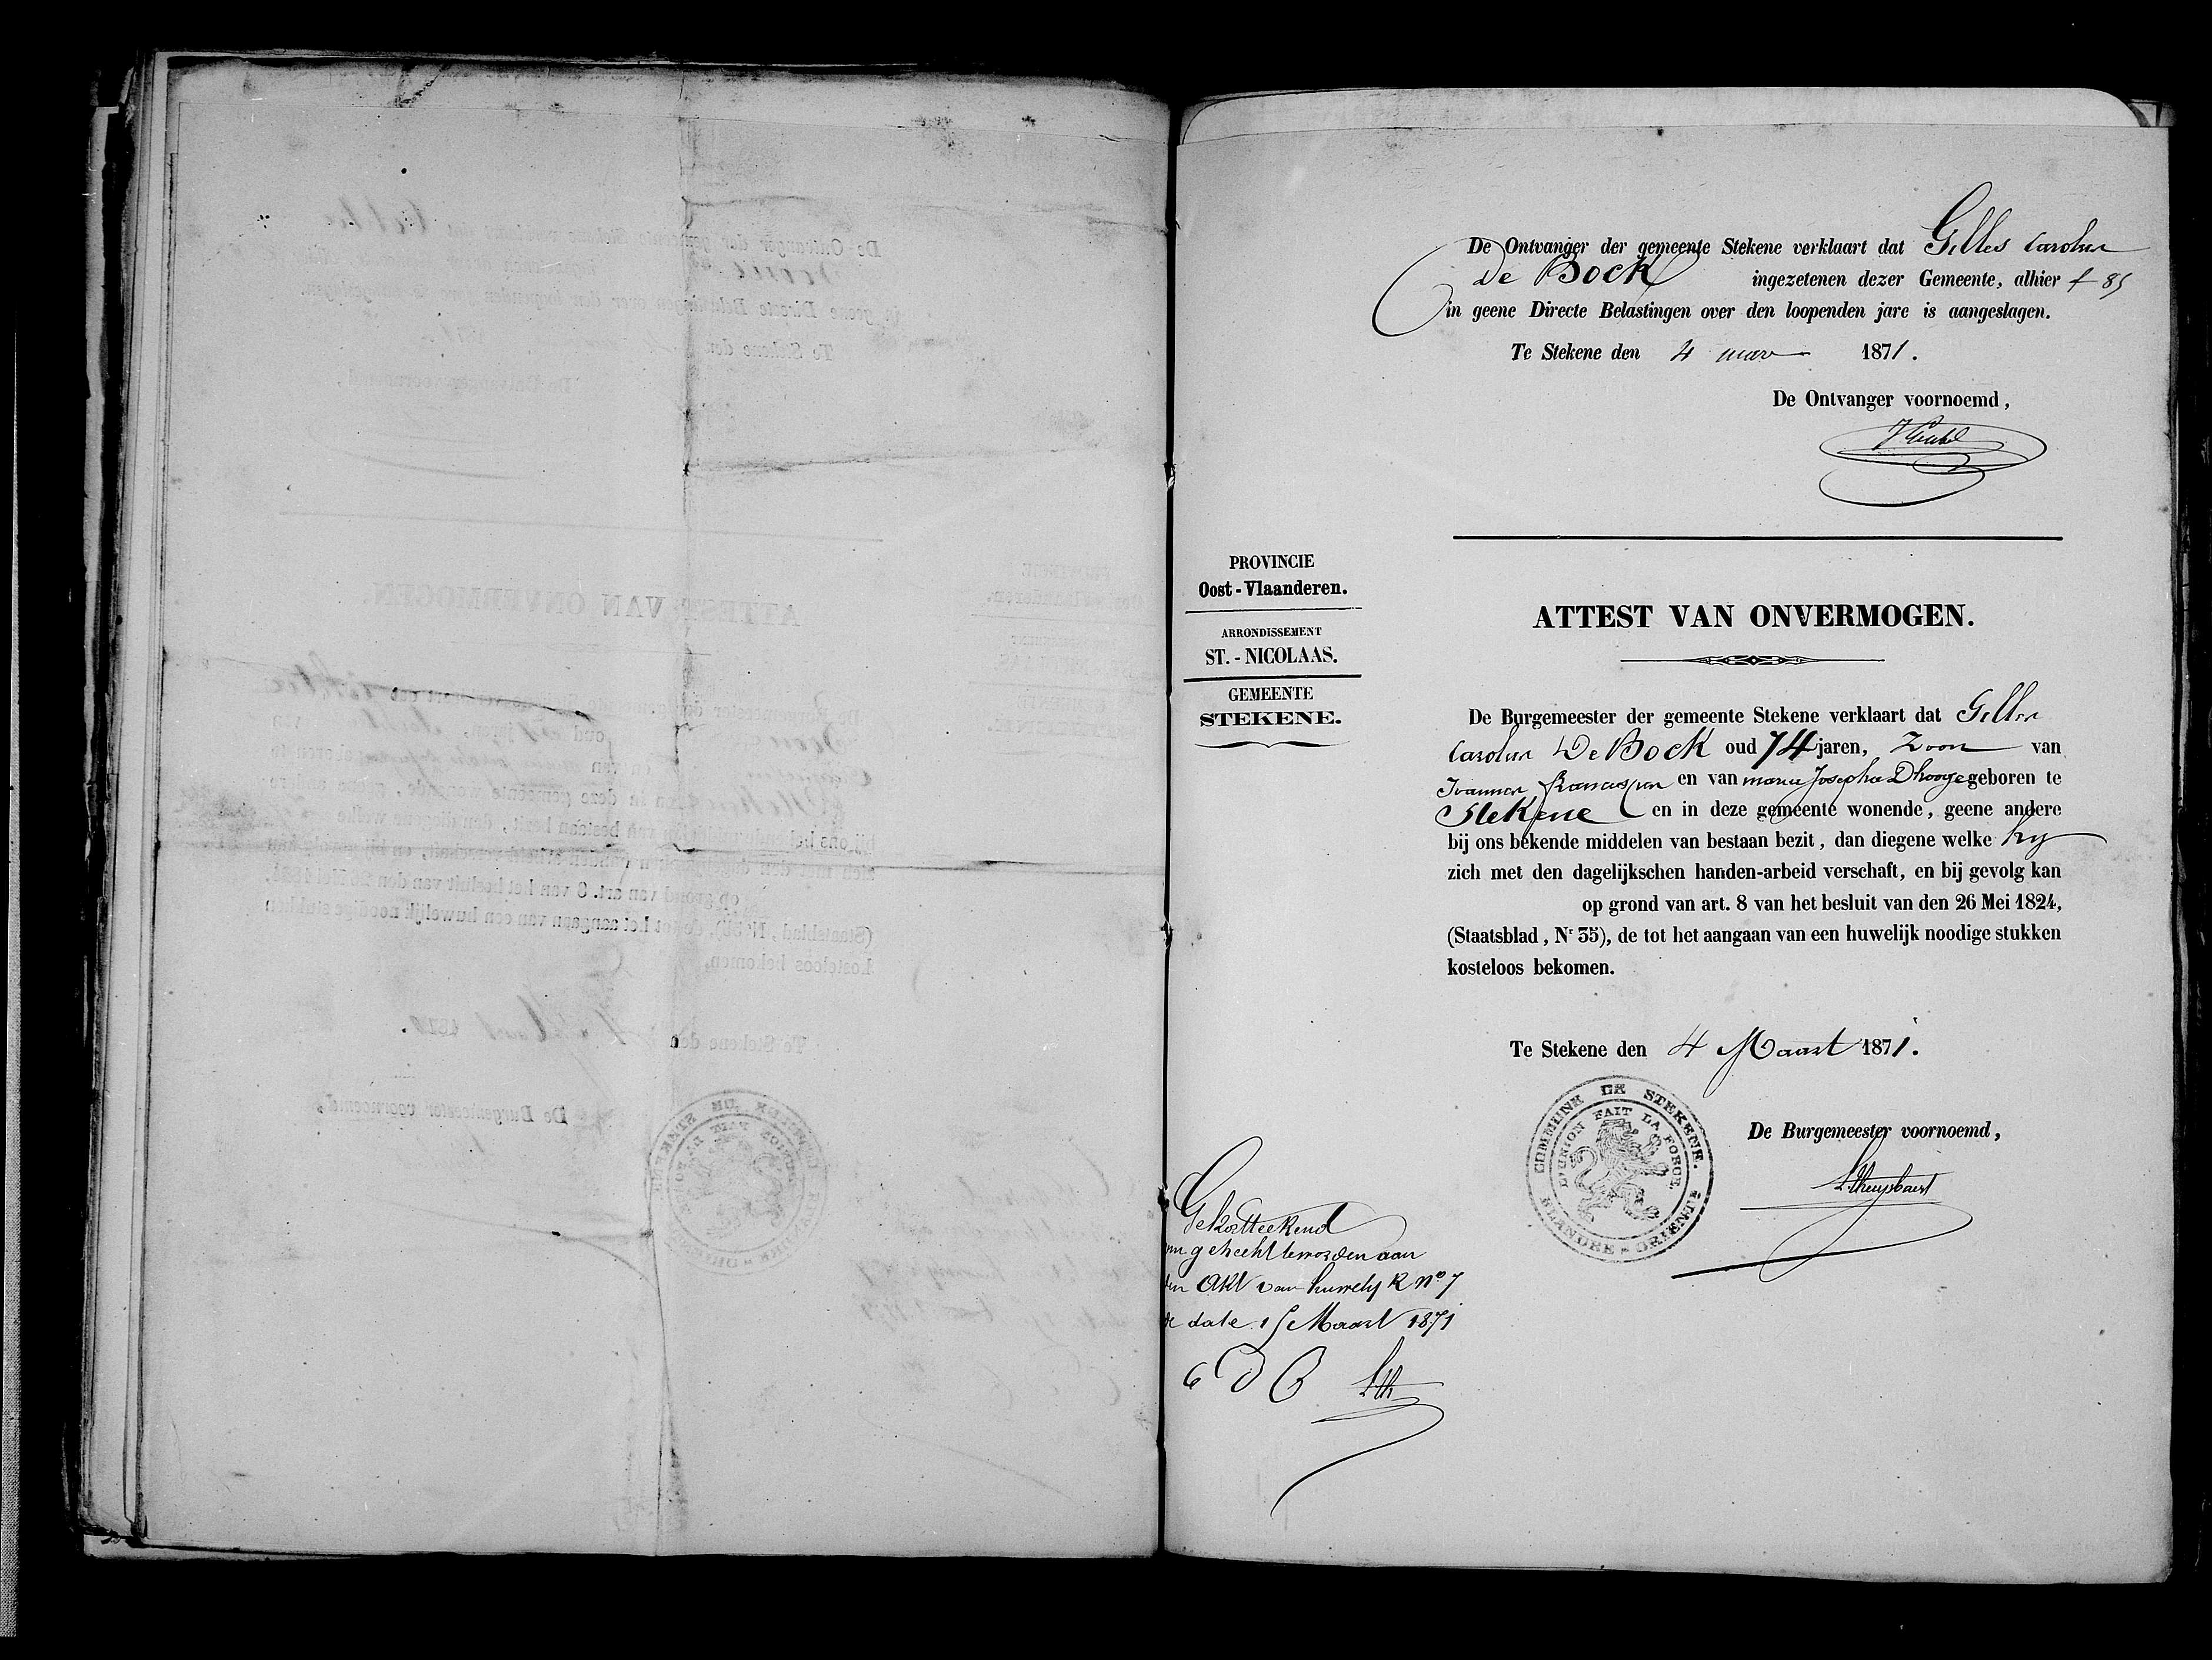 De Ontvanger der gemeente Stekene verklaart dat Gilles Carolus
De Bock ingezetenen dezer Gemeente, alhier f 85
in geene Directe Belastingen over den loopenden jare is aangeslagen.
Te Stekene den 4 1871.
De Ontvanger voornoemd,
PROVINCIE
Oost-Vlaanderen.
ARRONDISSEMENT
ST.-NICOLAAS.
GEMEENTE
STEKENE.
ATTEST VAN ONVERMOGEN.
De Burgemeester der gemeente Stekene verklaart dat Gilles
Carolus De Bock oud 74 jaren, Zoon van
Joannes Franciscus en van maria Josepha Dhooge geboren te
Stekene en in deze gemeente wonende, geene andere
bij ons bekende middelen van bestaan bezit, dan diegene welke hy
zich met den dagelijkschen handen-arbeid verschaft, en bij gevolg kan
op grond van art. 8 van het besluit van den 26 Mei 1824,
(Staatsblad, Nr 35), de tot het aangaan van een huwelijk noodige stukken
kosteloos bekomen.
Te Stekene den 4 Maart 1871.
COMMUNE DE STEKENE.
FLANDRE ORIENT
L'UNION FAIT LA FORCE.
De Burgemeester voornoemd,
Gekortteekend
om gehecht te worden aan
den Akt van huwelyk No 7
de date 15 Maart 1871